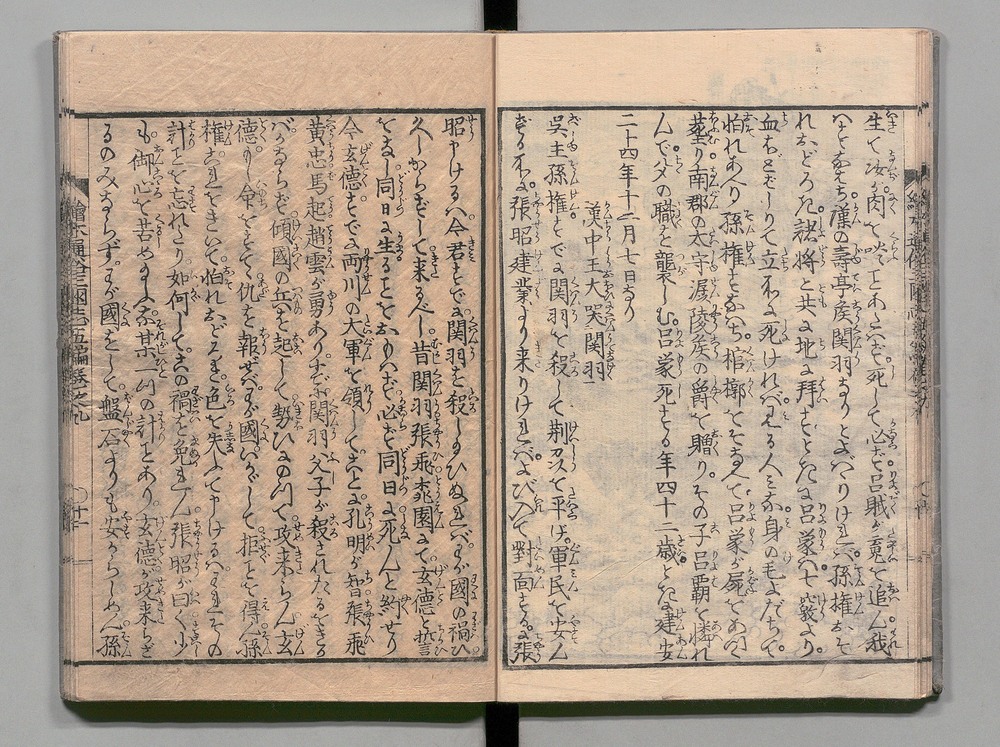 生て汝が肉を喰ことあたはず死して必ず呂賊が魂を追ん我
はすなはち漢の壽亭侯関羽なりとよばはりければ孫権おそ
れおどろき諸将と共に地に拝すときに呂蒙は七竅より
血ほどばしりて立所に死ければ見る人みな身の毛よだちて
怕れあへり孫権すなはち棺槨をそなへて呂蒙が屍をあつく
葬り南郡の太守潺陵侯の爵を贈りその子呂覇を憐れ
んで父の職を襲しむ呂蒙死する年四十二歳ときに建安
二十四年十二月七日なり
漢中王大哭関羽
呉主孫権すでに関羽を殺して荆州を平げ軍民を安ん
ずる所に張昭建業より来りければよび入て對面する張
昭申けるは今君すでに関羽を殺し給ひぬればわが國の禍ひ
久しからずして来るべし昔関羽張飛桃園にて玄德と誓
をなし同日に生ることなおはずとも必ず同日に死んと約せり
今玄德すでに両川の大軍を領してことに孔明が智張飛
黄忠馬超趙雲が勇ありもし関羽父子が殺されたるをきる
かならず傾國の兵を起して勢ひにのつて攻来らん玄
德もし命をすてて仇を報ぜばわが國いかがして拒ことを得ん孫
権これをきいて怕れおどろき色を失ふて申けるはわれその
計ことを忘れたり如何してこの禍を免れん張昭が曰く少
も御心を苦め給ふな某一つの計ことあり玄德が攻来らざ
るのみならずわが國をして盤石よりも安からしめん孫
繪本通俗三國志五編巻之九
〇十一